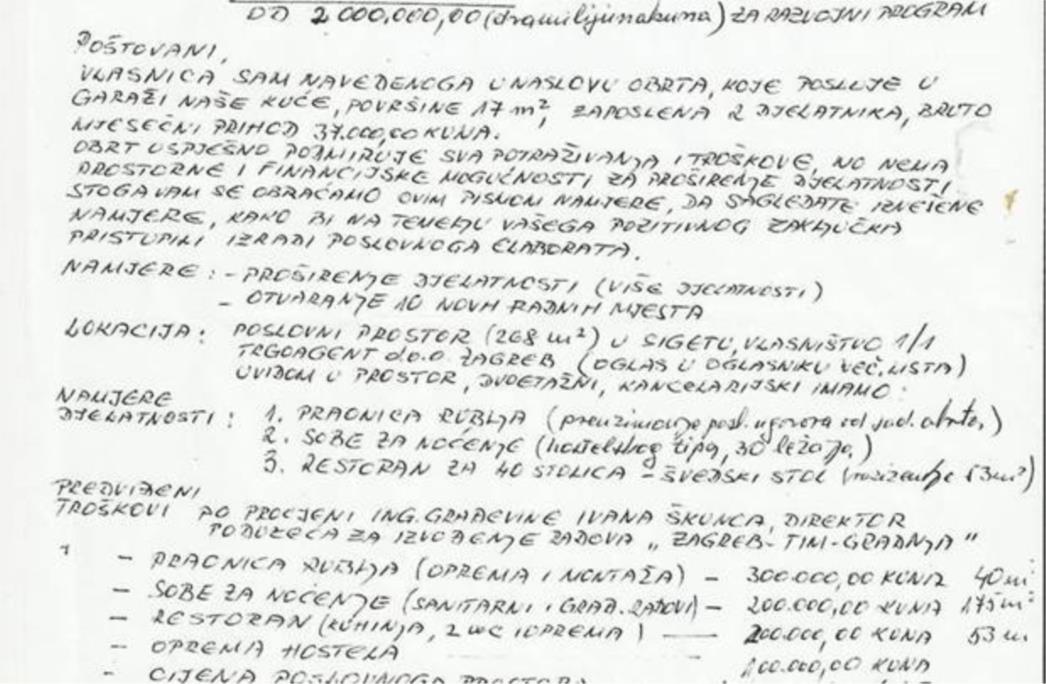 OD 2 000.000,00 (dva milijuna kuna) ZA RAZVOJNI PROGRAM
POŠTOVANI,
VLASNICA SAM NAVEDENOGA U NASLOVU OBRTA, KOJE POSLUJE U
GARAŽI NAŠE KUĆE, POVRŠINE 17 m², ZAPOSLENA 2 DJELATNIKA, BRUTO
MJESEČNI PRIHOD 37.000,00 KUNA.
OBRT USPJEŠNO PODMIRUJE SVA POTRAŽIVANJA I TROŠKOVE, NO NEMA
PROSTORNE I FINANCIJSKE MOGUĆNOSTI ZA PROŠIRENJE DJELATNOSTI
STOGA VAM SE OBRAĆAMO OVIM PISMOM NAMJERE, DA SAGLEDATE IZNEŠENE
NAMJERE, KAKO BI NA TEMELJU VAŠEGA POZITIVNOG ZAKLJUČKA
PRISTUPILI IZRADI POSLOVNOGA ELABORATA.
NAMJERE : - PROŠIRENJE DJELATNOSTI (VIŠE DJELATNOSTI)
- OTVARANJE 10 NOVIH RADNIH MJESTA
LOKACIJA : POSLOVNI PROSTOR (268 m²) U SIGETU, VLASNIŠTVO 1/1
TRGOAGENT d.o.o. ZAGREB (OGLAS U OGLASNIKU VEČ. LISTA)
UVIDOM U PROSTOR, DVOETAŽNI, KANCELARIJSKI IMAMO :
NAMJERE
DJELATNOSTI : 1. PRAONICA RUBLJA (preuzimanje posl. ugovora od sad. obrta,)
2. SOBE ZA NOĆENJE (hostelskog tipa, 30 ležaja,)
3. RESTORAN ZA 40 STOLICA - ŠVEDSKI STOL ( 53m²)
PREDVIĐENI
TROŠKOVI PO PROCJENI ING. GRAĐEVINE IVANA ŠKUNCA, DIREKTOR
PODUZEĆA ZA IZVOĐENJE RADOVA „ ZAGREB-TIM-GRADNJA "
- PRAONICA RUBLJA (OPREMA I MONTAŽA) - 300.000,00 KUNA 40 m²
- SOBE ZA NOĆENJE (SANITARNI I GRAĐ. RADOVI) - 200.000,00 KUNA 175 m²
- RESTORAN (KUHINJA, 2 WC I OPREMA) — 200.000,00 KUNA 53 m
- OPREMA HOSTELA 100.000,00 KUNA
- CIJENA POSLOVNOGA PROSTORA